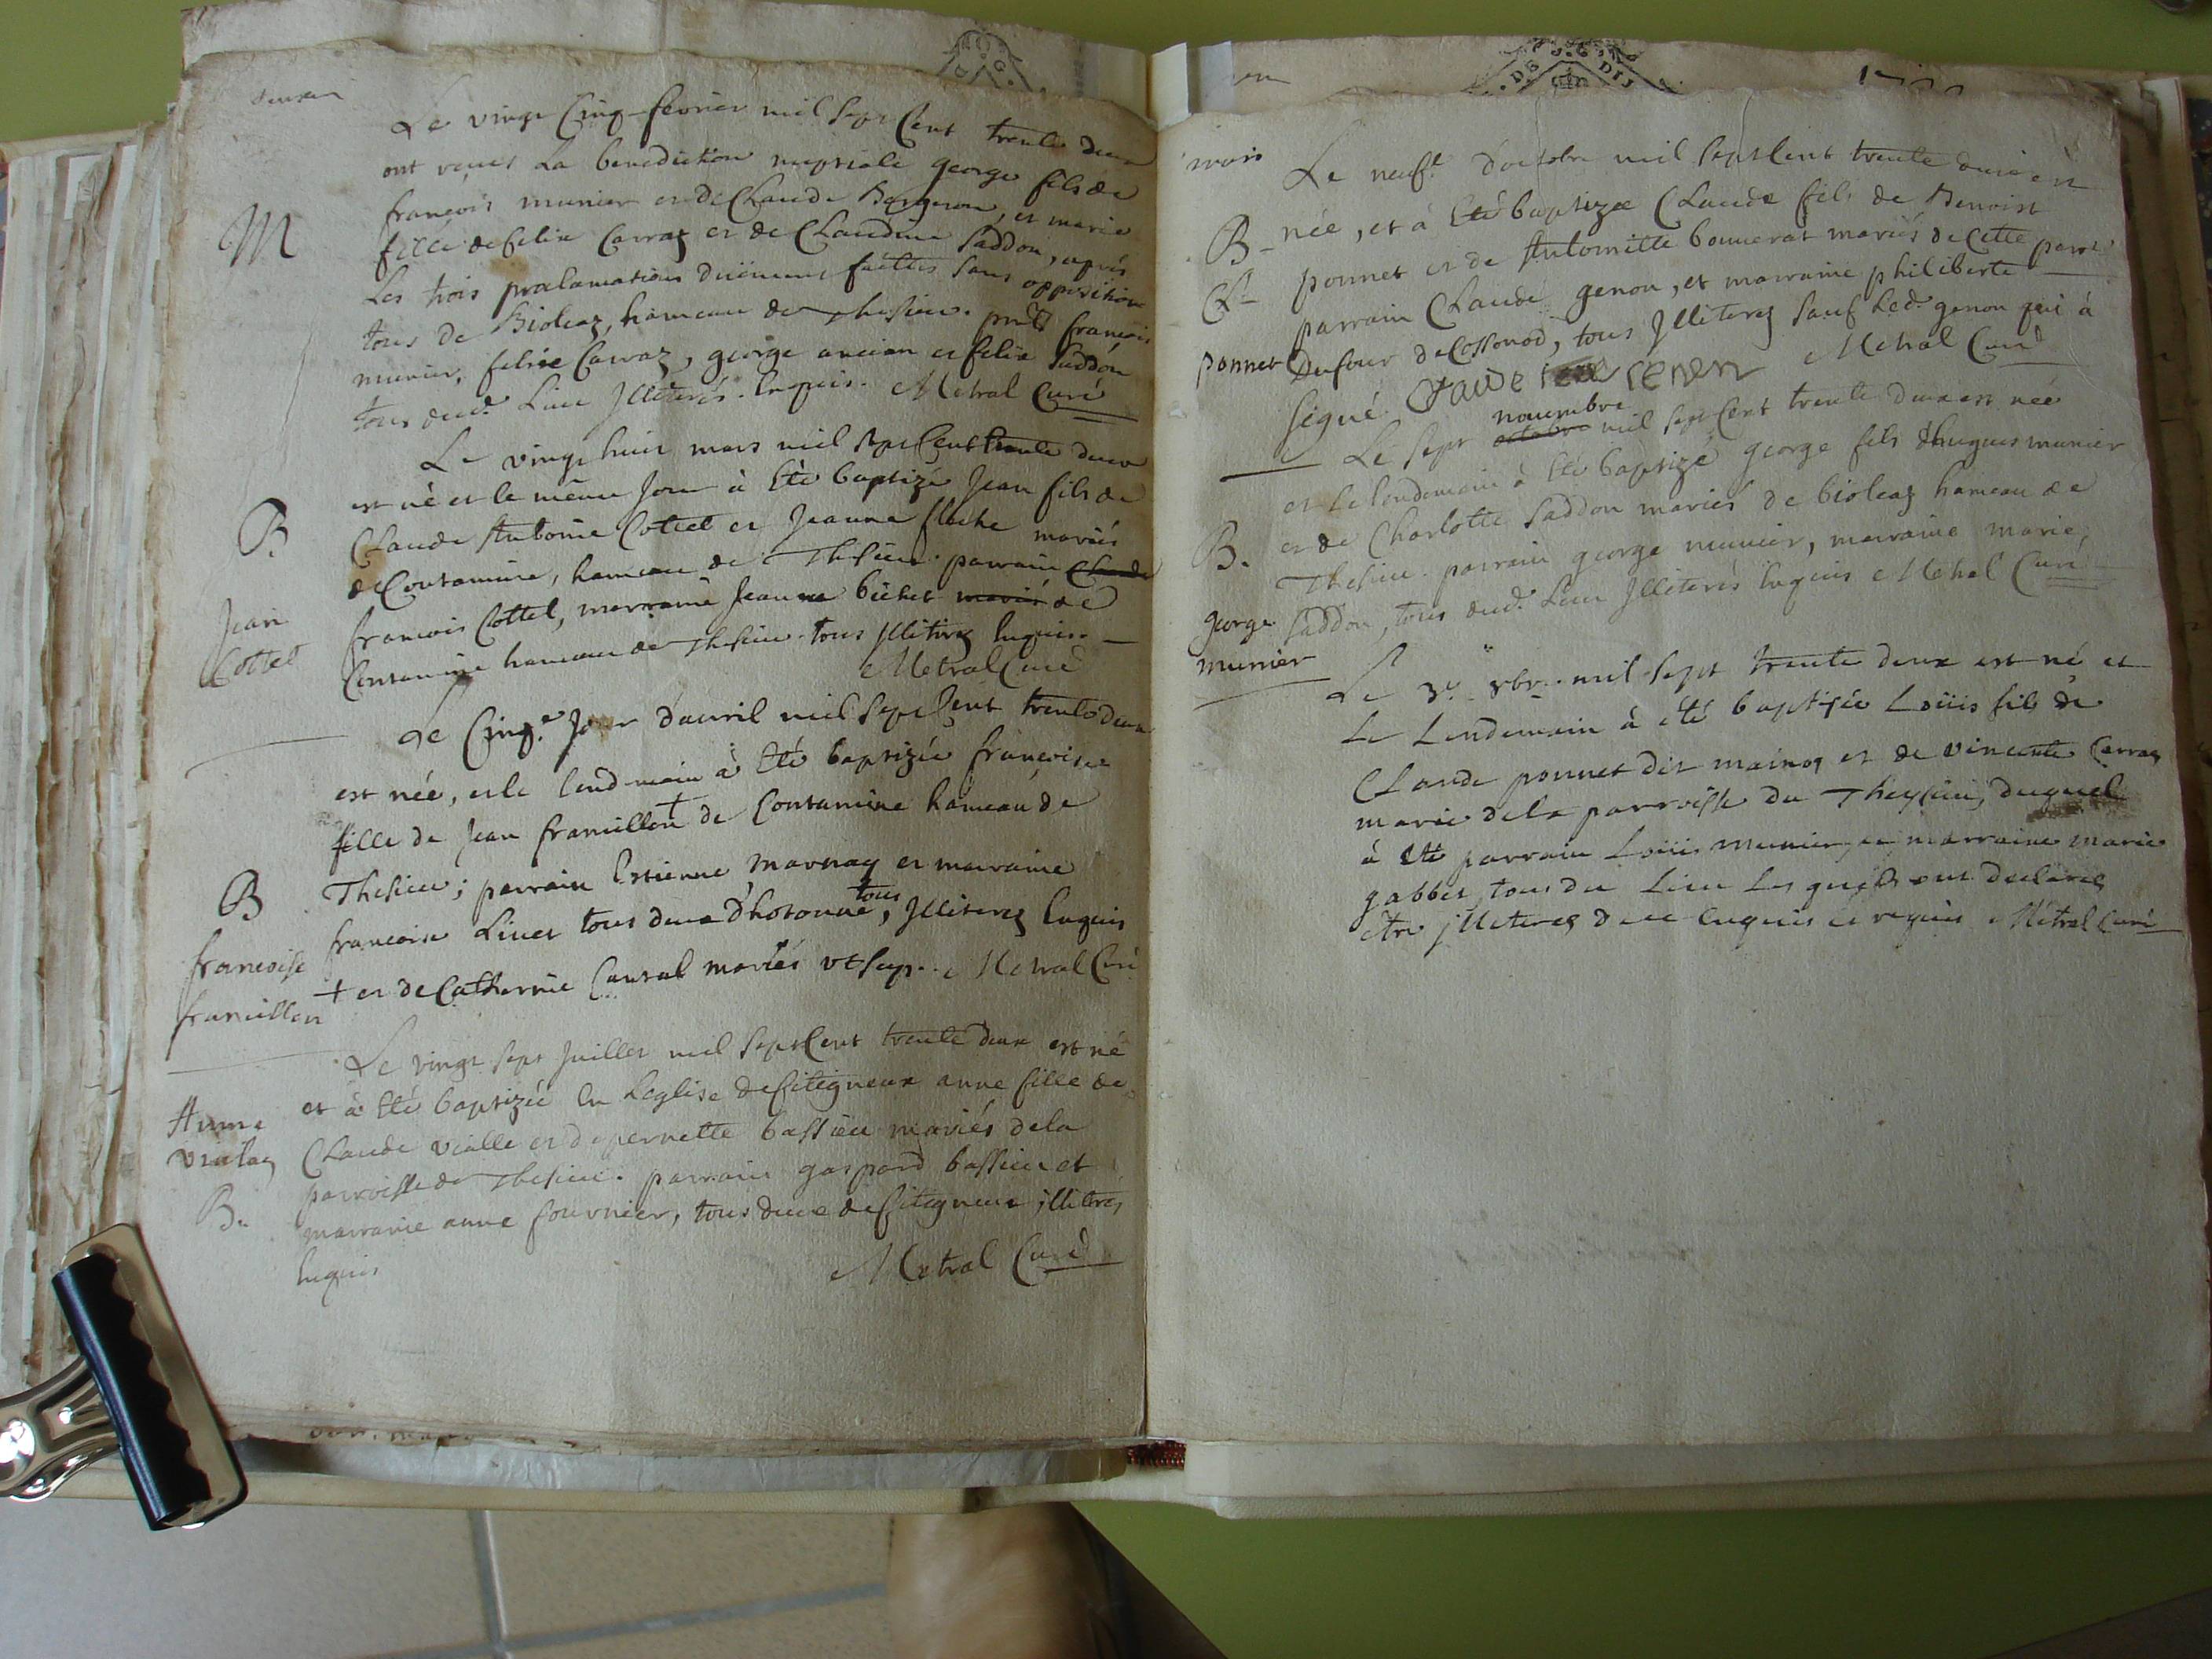 Le vingt Cinq fevrier mil sept Cent trente deux
ont reçues La benediction nuptiale george fils de
françois munier et de Claude Bergeron, et marie
M
fille de felix Carraz et de Claudine Saddon, après
Les trois proclamations duëment faittes sans opposition
tous de Bioleaz, hameau de Thesieu. françois
munier, felix Carraz, george ancian et felix Saddon
tous dud. Lieu Jlliterés. Enquis. Metral Curé
Le vingt huit mars mil sept Cent trente deux
est né et le même Jour à Eté baptizé Jean fils de
B
Claude Antoine Cottet et Jeanne floche mariés
de Contamine, hameau de Thesieu. parrain Claude
Jean
Cottet
francois Cottet, marraine Jeanne bichet mariés de
Contamine hameau de Thesieu. tous Jlliterez Enquis.
Metral Curé
Le Cinq.e Jour d'auril mil sept Cent trente deux
est née, et le lendemain à Eté baptizée françoise
fille de Jean francillon + de Contamine hameau de
B
Thesieu; parrain Estienne Marnay et marraine
francoise Liuet tous deux d'hotonne, tous Jlliterez Enquis
francoise
francillon
+ et de Catherine mariés vt sup. Metral Curé
Le vingt sept Juillet mil sept Cent trente deux est né
et à Eté baptizée En Leglise de fitigneux anne fille de
Anne
Claude vialle et de pernette bassieu mariés de la
parroisse de Thesieu. parrain gaspard bassieu et
B.
marraine anne fournier, tous deux de fitigneux illitéréz
Enquis
Metral Curé
Le neuf.e d'octobre mil sept Cent trente deux est
B
née, et à Eté baptizee Claude fils de Benoist
Cl.
ponnet et de Antoinitte bonnerat mariés de Cette parr.
parrain Claude genon, et marraine philiberte
ponnet
Dufour de Cossonod, tous Jlliterez sauf Led. genon qui à
signé. Claude Genon Metral Curé
Le sept octobre nouembre mil sept Cent trente deux est née
et Le lendemain à Eté baptizé george fils d'hugues munier
B.
et de Charlotte Saddon mariés de bioleaz hameau de
Thesieu. parrain george munier, marraine marie
george
munier
Saddon, tous dud. Lieu Jlliterés Enquis Metral Curé
Le 3.e xbr. mil sept trente deux est né et
Le Lendemain à été baptisée Loüis fils de
Claude ponnet dit mainoz et de vincente Carraz
marie de la parroisse du Theyseiu, duquel
à Eté parrain Loüis munier et marraine marie
gabbet, tous du Lieu Lesquels ont declarez
être jlleterez de ce Enquis et requis Métral Curé